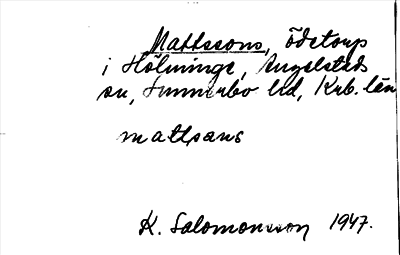 Mattssons, Ödetorp
i Hölminge, Angelstads
sn, Sunnerbo hd, Krb. län
mattsans
K. Salomonsson 1947.